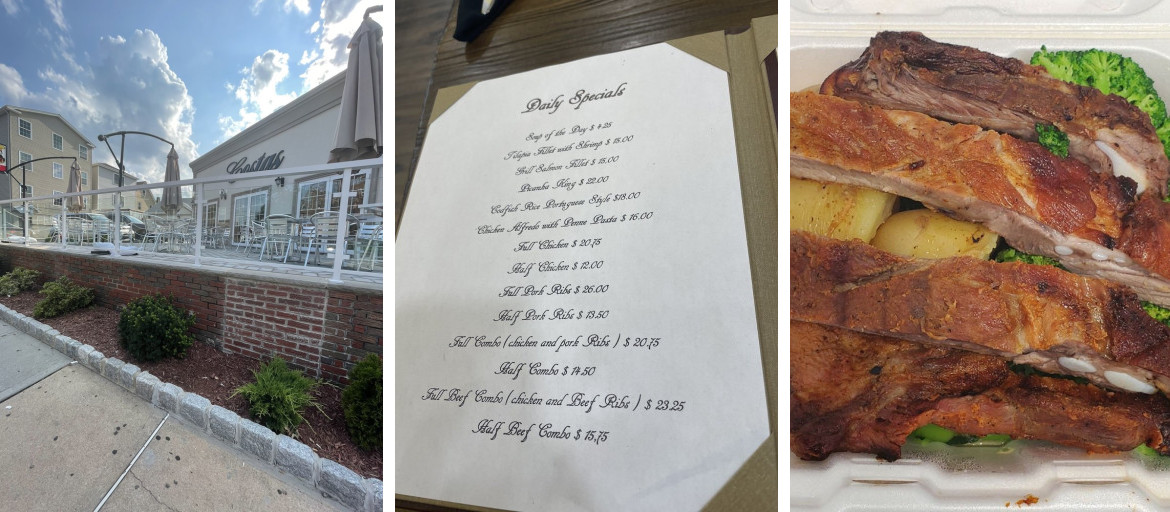 Costas
Daily Specials
Soup of the Day $ 4.25
Tilapia Fillet with Shrimp $ 15.00
Grill Salmon Fillet $ 15.00
Picanha King $ 22.00
Codfish Rice Portuguese Style $18.00
Chicken Alfredo with Penne Pasta $ 16.00
Full Chicken $ 20.75
Half Chicken $ 12.00
Full Pork Ribs $ 26.00
Half Pork Ribs $ 13.50
Full Combo ( chicken and pork Ribs ) $ 20.75
Half Combo $ 14.50
Full Beef Combo ( chicken and Beef Ribs ) $ 23.25
Half Beef Combo $ 15.75